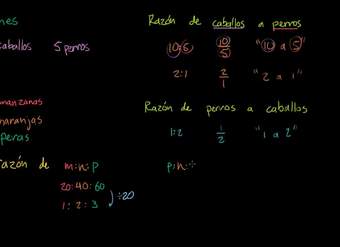 nes
caballos 5 perros
manzanas
naranjas
peras
razón de m:n:p
20:40:60
1:2:3 ÷20
Razón de caballos a perros
10:5 10/5 "10 a 5"
2:1 2/1 "2 a 1"
Razón de perros a caballos
1:2 1/2 "1 a 2"
p:n: